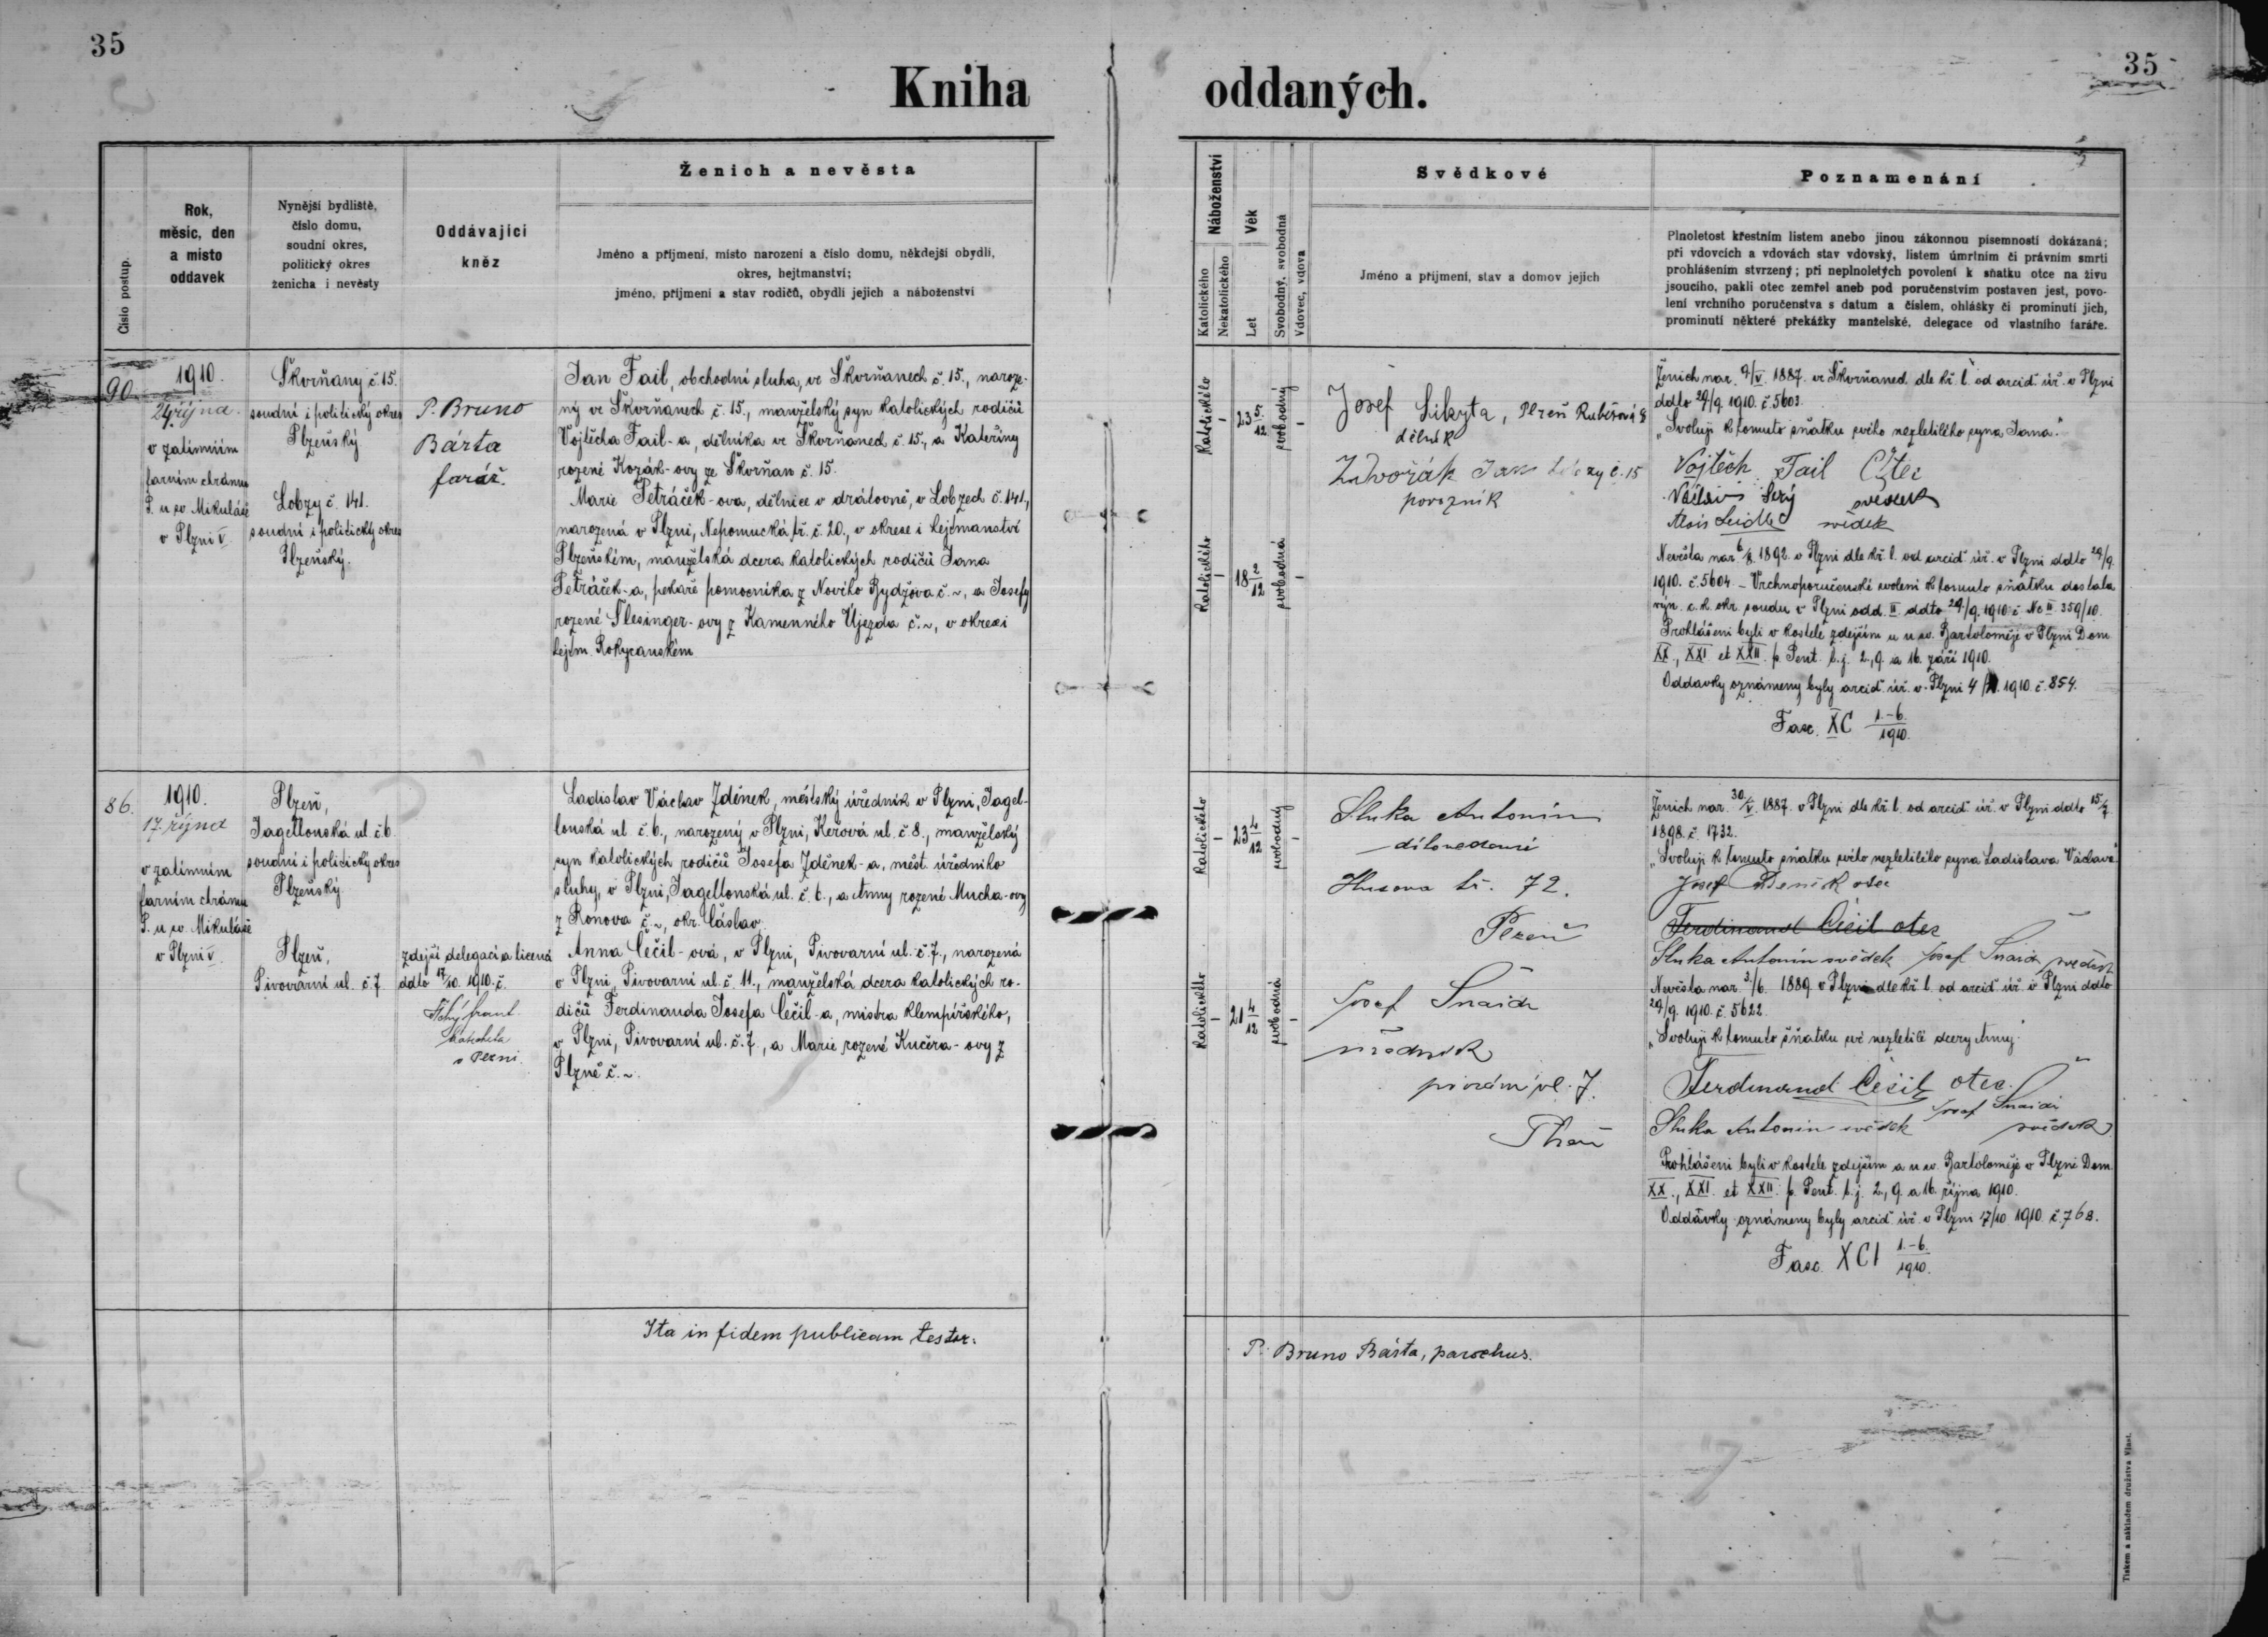 35
35
Kniha oddaných.
Číslo postup.
Rok,
měsíc, den
a místo
oddavek
Nynější bydliště,
číslo domu,
soudní okres,
politický okres
ženicha i nevěsty
Oddávající
kněz
Ženich a nevěsta
Jméno a příjmení, místo narození a číslo domu, někdejší obydlí,
okres, hejtmanství;
jméno, příjmení a stav rodičů, obydlí jejich a náboženství
Náboženství
Katolického
Nekatolického
Věk
Let
Svobodný, svobodná
Vdovec, vdova
Svědkové
Jméno a příjmení, stav a domov jejich
Poznamenání
Plnoletost křestním listem anebo jinou zákonnou písemností dokázaná;
při vdovcích a vdovách stav vdovský, listem úmrtním či právním smrti
prohlášením stvrzený; při neplnoletých povolení k sňatku otce na živu
jsoucího, pakli otec zemřel aneb pod poručenstvím postaven jest, povo-
lení vrchního poručenstva s datum a číslem, ohlášky či prominutí jich,
prominutí některé překážky manželské, delegace od vlastního faráře.
90.
1910.
24 října.
v zatímním
farním chrámu
P. u sv. Mikuláše
v Plzni V.
Škvrňany č. 15.
soudní i politický okres
Plzeňský.
Lobzy č. 141.
soudní i politický okres
Plzeňský.
P. Bruno
Bárta
farář.
Jan Fail, obchodní sluha, ve Škvrňanech č. 15., naroze-
ný ve Škvrňanech č. 15., manželský syn katolických rodičů
Vojtěcha Fail-a, dělníka ve Škvrňanech č. 15., a Kateřiny
rozené Kozák-ovy ze Škvrňan č. 15.
Marie Petráček-ova, dělnice v drátovně, v Lobzech č. 141.,
narozená v Plzni, Nepomucká tř. č. 20., v okrese i hejtmanství
Plzeňském, manželská dcera katolických rodičů Jana
Petráček-a, pekaře pomocníka z Nového Bydžova č. ~, a Josefy
rozené Šlesinger-ovy z Kamenného Újezda č. ~, v okresi
hejtm. Rokycanském.
Katolického
–
23 5/12
svobodný
–
Katolického
–
18 2/12
svobodná
–
Josef Sikyta, Plzeň Rubešová 8
dělník
Zdvořák Jan Lobzy č. 15
povozník
Ženich nar. 9/V. 1887. ve Škvrňanech dle kř. l. od arcid. úř. v Plzni
ddto 29/9. 1910. č. 5603.
„Svoluji k tomuto sňatku svého nezletilého syna Jana."
Vojtěch Fail Otec
Alois Seidl svědek
Nevěsta nar. 6/8. 1892. v Plzni dle kř. l. od arcid. úř. v Plzni ddto 29/9.
1910. č. 5604. – Vrchnoporučenské svolení k tomuto sňatku dostala
výn. c. k. okr. soudu v Plzni odd. II. ddto 29./9. 1910. č. Nc II. 359/10.
Prohlášeni byli v kostele zdejším a u sv. Bartoloměje v Plzni Dom.
XX., XXI. et XXII. p. Pent. t. j. 2., 9. a 16. září 1910.
Oddavky oznámeny byly arcid. úř. v Plzni 4/11. 1910. č. 854.
Fasc. XC 1.–6./1910.
86.
1910.
17. října
v zatímním
farním chrámu
P. u sv. Mikuláše
v Plzni V.
Plzeň,
Jagellonská ul. č. 6.
soudní i politický okres
Plzeňský.
Plzeň,
Pivovarní ul. č. 7
zdejší delegací a licencí
ddto 17/10. 1910. č.
Tichý Frant.
katecheta
v Plzni.
Ladislav Václav Zděnek, městský úředník v Plzni, Jagel-
lonská ul. č. 6., narozený v Plzni, Keřová ul. č. 8., manželský
syn katolických rodičů Josefa Zděnek-a, měst. úředního
sluhy, v Plzni, Jagellonská ul. č. 6., a Anny rozené Mucha-ovy
z Ronova č. ~, okr. Čáslav.
Anna Čečil-ová, v Plzni, Pivovarní ul. č. 7., narozená
v Plzni, Pivovarní ul. č. 11., manželská dcera katolických ro-
dičů Ferdinanda Josefa Čečil-a, mistra klempířského,
v Plzni, Pivovarní ul. č. 7., a Marie rozené Kučera-ovy z
Plzně č. ~.
Katolického
–
23 4/12
svobodný
–
Katolického
–
21 4/12
svobodná
–
Sluka Antonín
dílovedoucí
Husova tř. 72.
Plzeň
Josef Šnaidr
úředník
pivovární ul. 7.
Plzeň
Ženich nar. 30./V. 1887. v Plzni dle kř. l. od arcid. úř. v Plzni ddto 15/7.
1898. č. 1732.
„Svoluji k tomuto sňatku svého nezletilého syna Ladislava Václava"
Josef Zděnek otec
Ferdinand Čečil otec
Sluka Antonín svědek Josef Šnaidr svědek
Nevěsta nar. 3./6. 1889. v Plzni dle kř. l. od arcid. úř. v Plzni ddto
29/9. 1910. č. 5622.
„Svoluji k tomuto sňatku své nezletilé dcery Anny"
Ferdinand Čečil otec.
Sluka Antonín svědek Josef Šnaidr
svědek
Prohlášeni byli v kostele zdejším a u sv. Bartoloměje v Plzni Dom.
XX., XXI. et XXII. p. Pent. t. j. 2., 9. a 16. října 1910.
Oddavky oznámeny byly arcid. úř. v Plzni 17/10 1910. č. 768.
Fasc. XCI 1.–6./1910.
Ita in fidem publicam testor:
P. Bruno Bárta, parochus.
Tiskem a nákladem družstva Vlast.